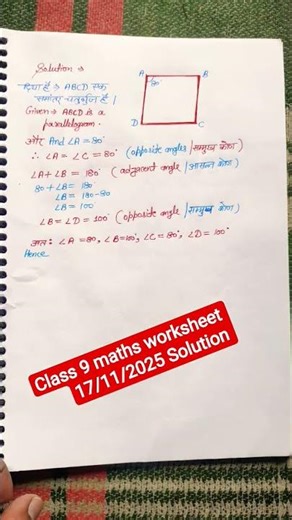 Solution →
दिया है → ABCD एक
समांतर चतुर्भुज है।
Given → ABCD is a
parallelogram.
A B
80°
D C
और And ∠A = 80°
∴ ∠A = ∠C = 80° (opposite angles / सम्मुख कोण)
∠A + ∠B = 180° (adjacent angle / आसन्न कोण)
80 + ∠B = 180
∠B = 180-80
∠B = 100
∠B = ∠D = 100° (opposide angle / सम्मुख कोण)
अतः ∠A = 80, ∠B = 100°, ∠C = 80°, ∠D = 100°
Hence
Class 9 maths worksheet
17/11/2025 Solution